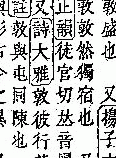 敦盛也　又揚子
敦敦然獨宿也
正韻徒官切𠀤音
又詩大雅敦彼行
註敦與屯同陳也